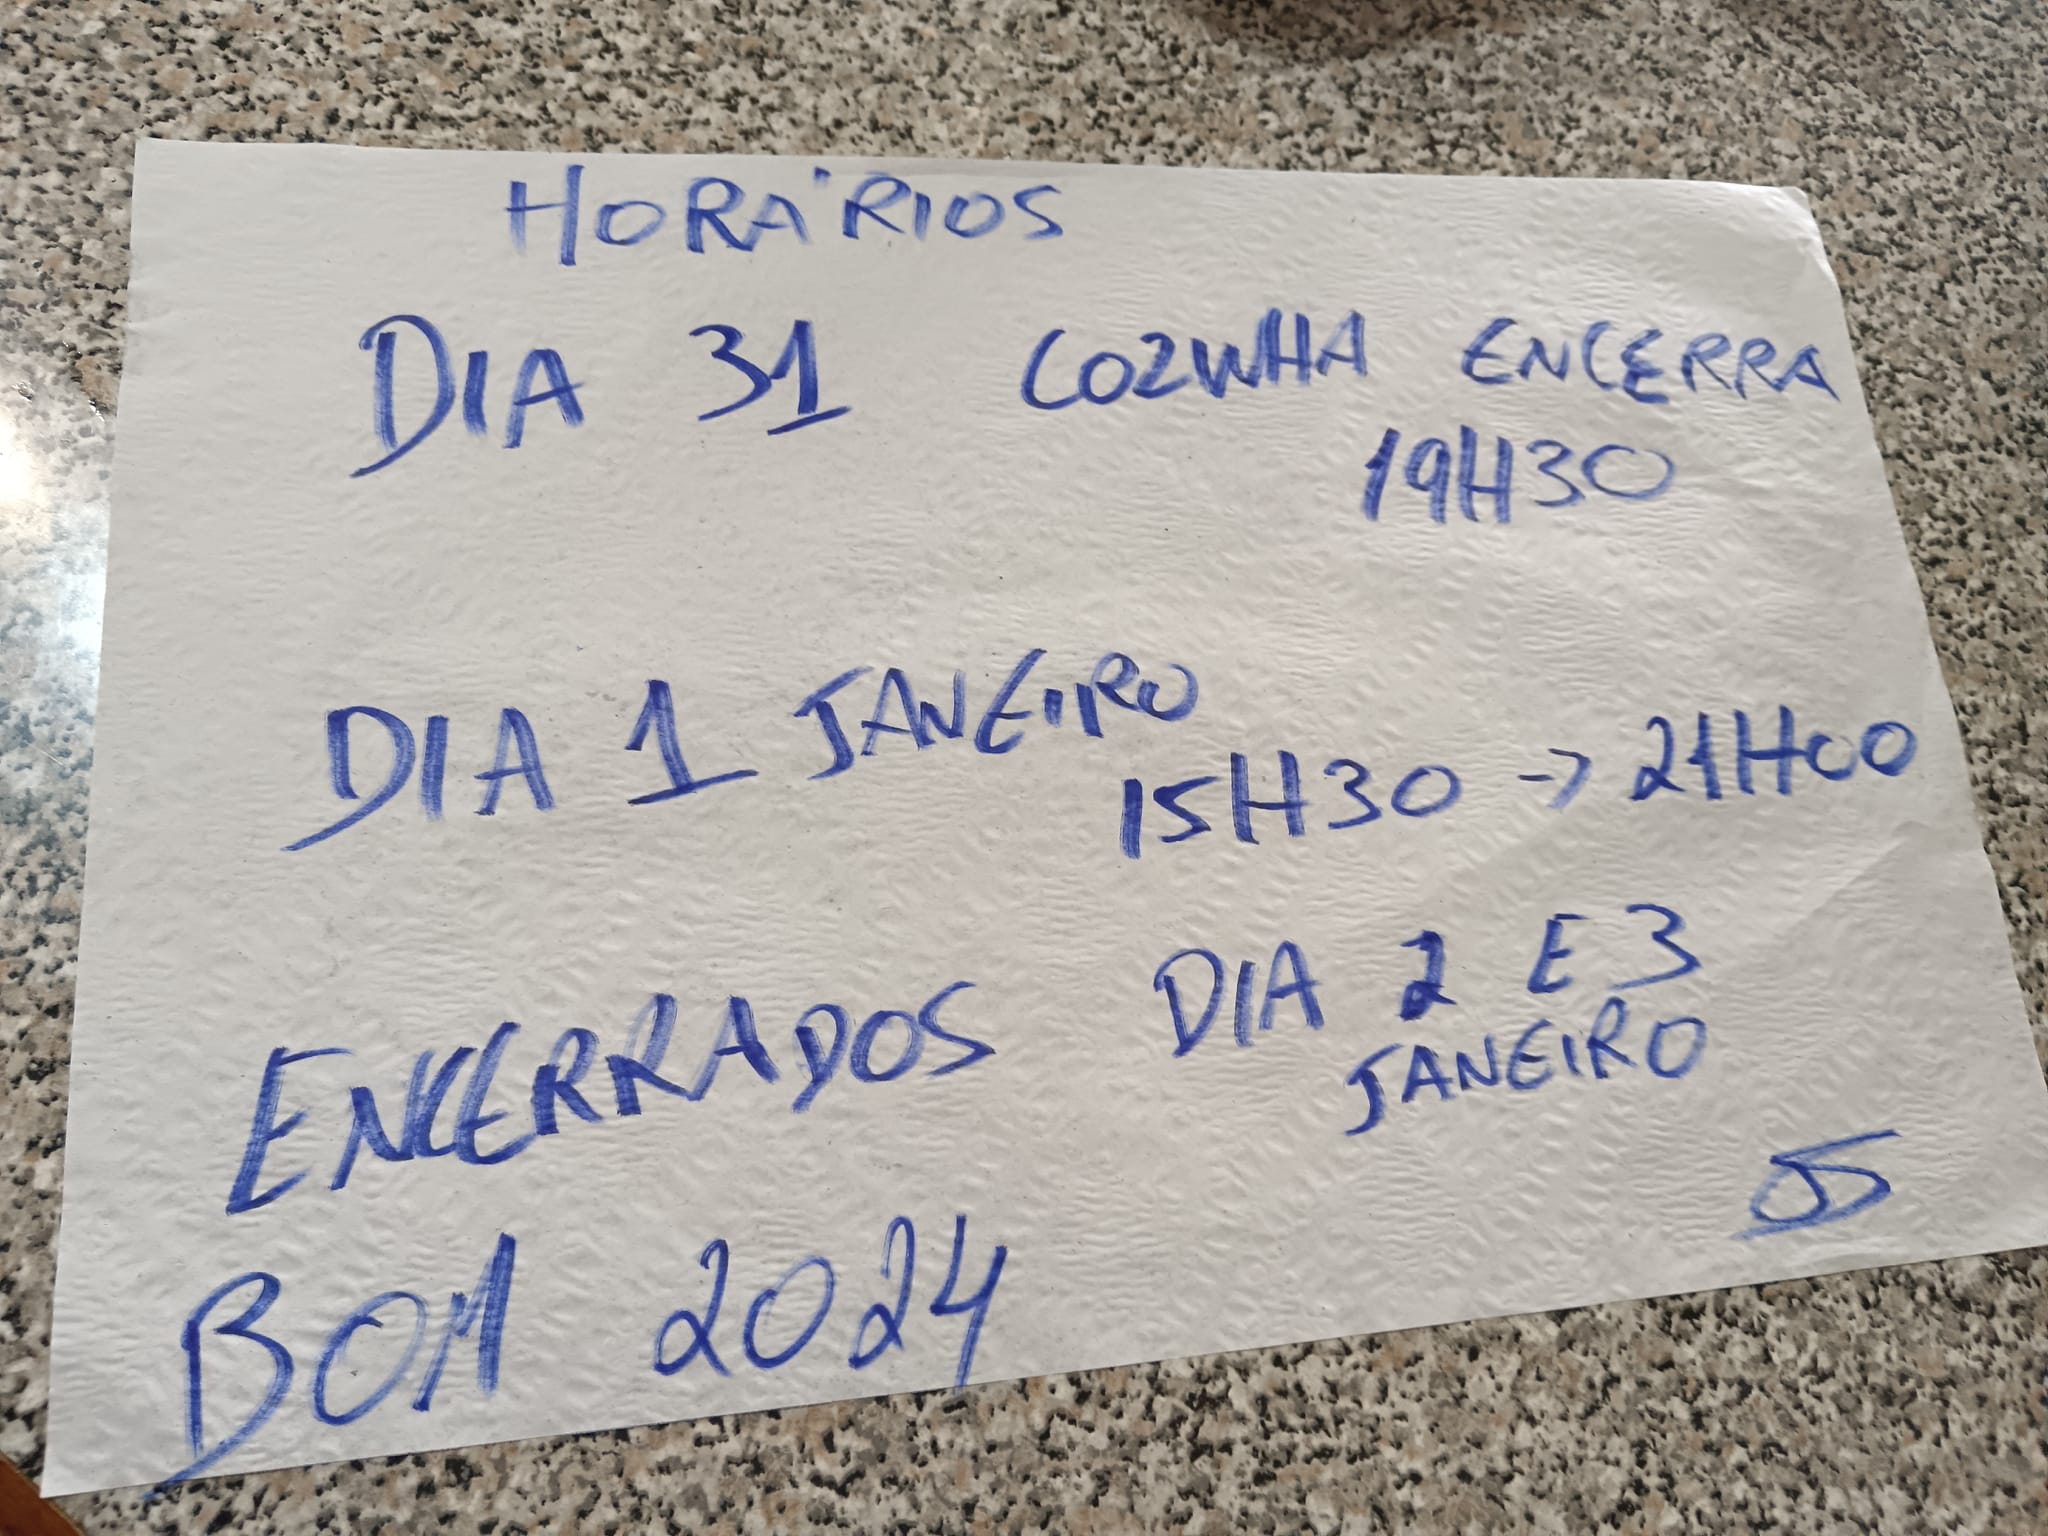 HORÁRIOS
DIA 31 COZINHA ENCERRA
19H30
DIA 1 JANEIRO
15H30 → 21H00
ENCERRADOS DIA 2 E 3
JANEIRO
BOM 2024